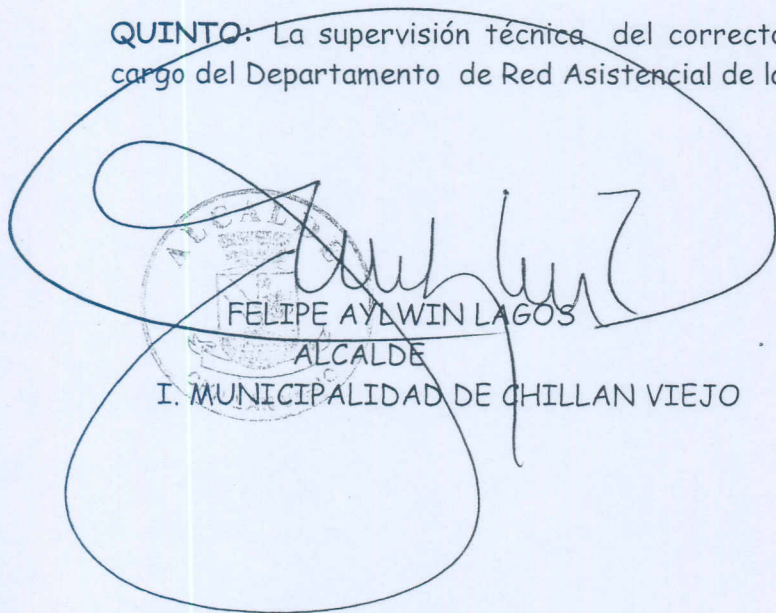 QUINTO: La supervisión técnica del correcto
cargo del Departamento de Red Asistencial de la
ALCALDIA
FELIPE AYLWIN LAGOS
ALCALDE
I. MUNICIPALIDAD DE CHILLAN VIEJO